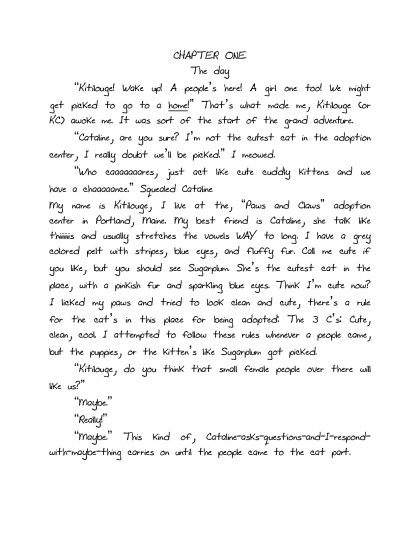 CHAPTER ONE
The day
"Kitilouge! Wake up! A people's here! A girl one too! We might
get picked to go to a home!" That's what made me, Kitilouge (or
KC) awoke me. It was sort of the start of the grand adventure.
"Cataline, are you sure? I'm not the cutest cat in the adoption
center, I really doubt we'll be picked." I meowed.
"Who caaaaaaares, just act like cute cuddly kittens and we
have a chaaaaance." Squealed Cataline
My name is Kitilouge, I live at the, "Paws and Claws" adoption
center in Portland, Maine. My best friend is Cataline, she talk like
thiiiiis and usually stretches the vowels WAY to long. I have a grey
colored pelt with stripes, blue eyes, and fluffy fur. Call me cute if
you like, but you should see Sugarplum. She's the cutest cat in the
place, with a pinkish fur and sparkling blue eyes. Think I'm cute now?
I licked my paws and tried to look clean and cute, there's a rule
for the cat's in this place for being adopted: The 3 C's: Cute,
clean, cool. I attempted to follow these rules whenever a people came,
but the puppies, or the kitten's like Sugarplum got picked.
"Kitilouge, do you think that small female people over there will
like us?"
"Maybe."
"Really?"
"Maybe." This kind of, Cataline-asks-questions-and-I-respond-
with-maybe-thing carries on until the people came to the cat part.